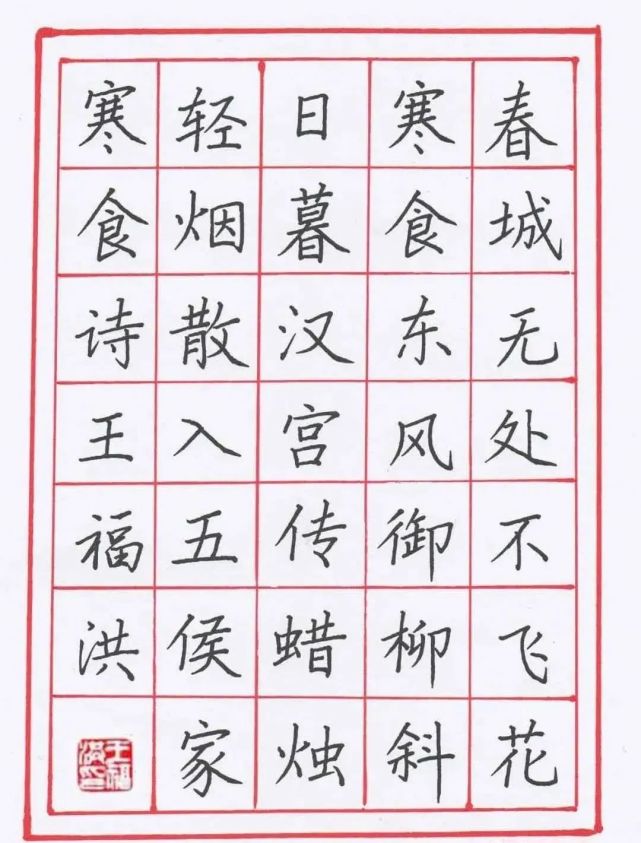 春城无处不飞花
寒食东风御柳斜
日暮汉宫传蜡烛
轻烟散入五侯家
寒食诗王福洪
王福洪印